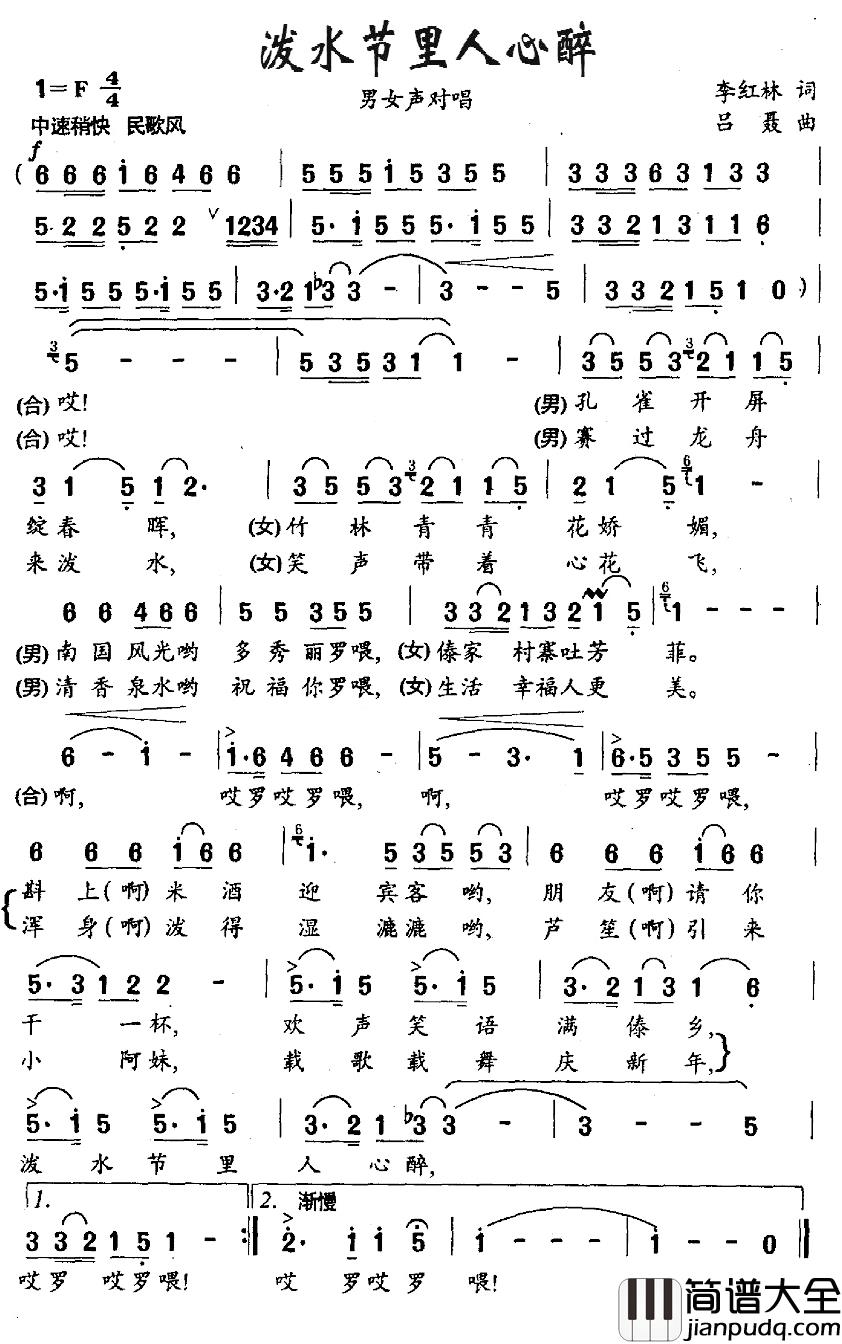 泼水节里人心醉
1=F 4/4
男女声对唱
李红林 词
中速稍快 民歌风
吕聂 曲
f
(6 6 6 6 1 6 4 6 6 6 | 5 5 5 5 1 5 3 5 5 | 3 3 3 6 3 1 3 3 |
5· 2 2 5 2 2 ∨ 1234 | 5· 1 5 5 5· 1 5 5 | 3 3 2 1 3 1 1 6 |
5·1 5 5 5·1 5 5 | 3·2 1 ♭3 3 - | 3 - - 5 | 3 3 2 1 5 1 0 ) |
3 5 - - - | 5 3 5 3 1 1 - | 3 5 5 3 3 2 1 1 5 |
(合)哎! (男)孔 雀 开 屏
(合)哎! (男)赛 过 龙 舟
3 1 5 1 2· | 3 5 5 3 3 2 1 1 5 | 2 1 5 6 1 - |
绽春 晖, (女)竹 林 青 青 花娇 媚,
来泼 水, (女)笑 声 带 着 心花 飞,
6 6 4 6 6 | 5 5 3 5 5 | 3 3 2 1 3 2 1 5 | 6 1 - - - |
(男)南 国 风光哟 多 秀 丽罗喂, (女)傣家 村寨吐芳 菲。
(男)清 香 泉水哟 祝 福 你罗喂, (女)生活 幸福人更 美。
6 - 1 - | 1·6 4 6 6 6 - | 5 - 3· 1 | 6·5 3 5 5 5 - |
(合)啊, 哎罗哎罗喂, 啊, 哎罗哎罗喂,
6 6 6 1 6 6 | 6 1· 5 3 5 5 3 | 6 6 6 1 6 6 |
斟 上(啊)米 酒 迎 宾客 哟, 朋 友(啊)请 你
浑 身(啊)泼 得 湿 漉漉 哟, 芦 笙(啊)引 来
5· 3 1 2 2 - | 5· 1 5 5· 1 5 | 3· 2 1 3 1 6 |
干 一杯, 欢 声 笑 语 满 傣 乡,
小 阿妹, 载 歌 载 舞 庆 新 年,
5· 1 5 5· 1 5 | 3· 2 1 ♭3 3 - | 3 - - 5 |
泼 水 节 里 人 心 醉,
1. 2. 渐慢
3 3 2 1 5 1 - :| 2· 1 1 6 | 1 - - - | 1 - - 0 ||
哎罗 哎罗喂! 哎 罗哎罗 喂!
简谱大全
jianpudq.com